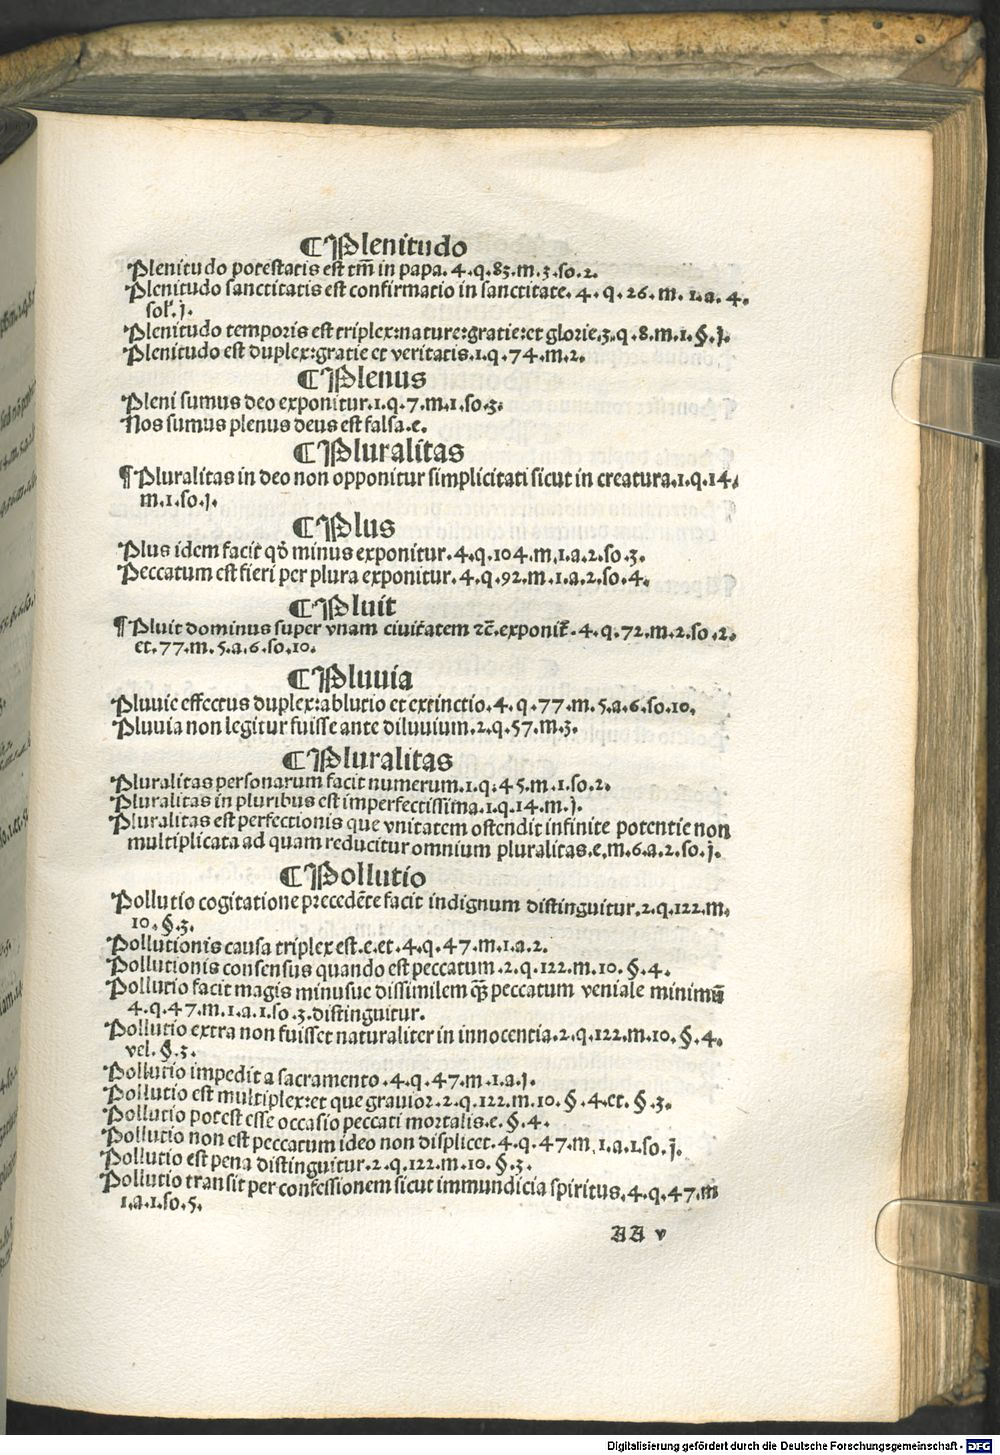 ¶Plenitudo
Plenitudo potestatis est tm̄ in papa. 4. q. 83. m. 3. so. 2.
Plenitudo sanctitatis est confirmatio in sanctitate. 4. q. 26. m. 1. a. 4.
sol̓. j.
Plenitudo temporis est triplex: nature: gratie: et glorie. 3. q. 8. m. 1. §. j.
Plenitudo est duplex: gratie et veritatis. 1. q. 74. m. 2.
¶Plenus
Pleni sumus deo exponitur. 1. q. 7. m. 1. so. 3.
Nos sumus plenus deus est falsa. e.
¶Pluralitas
¶Pluralitas in deo non opponitur simplicitati sicut in creatura. 1. q. 14.
m. 1. so. j.
¶Plus
Plus idem facit qd̄ minus exponitur. 4. q. 104. m. 1. a. 2. so. 3.
Peccatum est fieri per plura exponitur. 4. q. 92. m. 1. a. 2. so. 4.
¶Pluit
¶Pluit dominus super vnam ciuitatem ⁊c̄. exponit̄. 4. q. 72. m. 2. so. 2.
et. 77. m. 5. a. 6. so. 10.
¶Pluuia
Pluuie effectus duplex: ablutio et extinctio. 4. q. 77. m. 5. a. 6. so. 10.
Pluuia non legitur fuisse ante diluuium. 2. q. 57. m. 3.
¶Pluralitas
Pluralitas personarum facit numerum. 1. q. 45. m. 1. so. 2.
Pluralitas in pluribus est imperfectissima. 1. q. 14. m. j.
Pluralitas est perfectionis que vnitatem ostendit infinite potentie non
multiplicata ad quam reducitur omnium pluralitas. e. m. 6. a. 2. so. j.
¶Pollutio
Pollutio cogitatione precedēte facit indignum distinguitur. 2. q. 122. m.
10. §. 3.
Pollutionis causa triplex est. e. et. 4. q. 47. m. 1. a. 2.
Pollutionis consensus quando est peccatum. 2. q. 122. m. 10. §. 4.
Pollutio facit magis minusue dissimilem qꝫ peccatum veniale minimū
4. q. 47. m. 1. a. 1. so. 3. distinguitur.
Pollutio extra non fuisset naturaliter in innocentia. 2. q. 122. m. 10. §. 4.
vel. §. 3.
Pollutio impedit a sacramento. 4. q. 47. m. 1. a. j.
Pollutio est multiplex: et que grauior. 2. q. 122. m. 10. §. 4. et. §. 3.
Pollutio potest esse occasio peccati mortalis. e. §. 4.
Pollutio non est peccatum ideo non displicet. 4. q. 47. m. 1. a. 1. so. j.
Pollutio est pena distinguitur. 2. q. 122. m. 10. §. 3.
Pollutio transit per confessionem sicut immundicia spiritus. 4. q. 47. m
1. a. 1. so. 5.
AA v
Digitalisierung gefördert durch die Deutsche Forschungsgemeinschaft - DFG